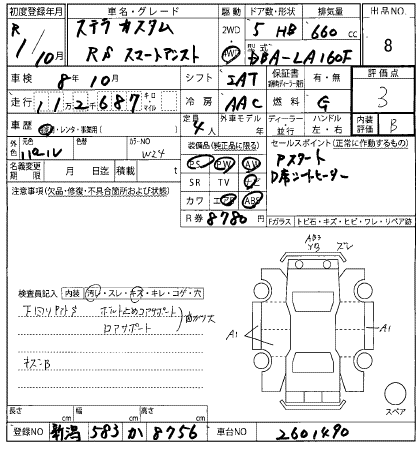 初度登録年月 車名・グレード 駆動 ドア数・形状 排気量 出品NO
R 1/10月 ステラ カスタム RS スマートアシスト 2WD 4WD 5 HB 660 cc 8
型式 DBA-LA160F
車検 8年10月 シフト IAT 保証書 有・無 評価点 3
走行 112687 キロ・マイル 冷房 AAC 燃料 G
車歴 レンタ・事業用 定員 4人 外車モデル 年 ディーラー 並行 ハンドル 左・右 内装評価 B
外色 元色 色替 カラーNO W24 装備品(純正品に限る) セールスポイント(正常に作動するもの)
PS PW AW Pスタート
名義変更期限 月 日迄 積載 t SR TV ナビ D席シートヒーター
カワ エアB ABS
注意事項(欠品・修復・不具合箇所および状態) R券 8780円 Fガラス トビ石・キズ・ヒビ・ワレ・リペア跡
検査員記入 内装 汚レ・スレ・キズ・キレ・コゲ・穴
下回りサビS
コアサポート
キズ B
A1
A1
スペア
長さ cm 幅 cm 高さ cm
登録NO 新潟 583 か 8756 車台NO 2601490